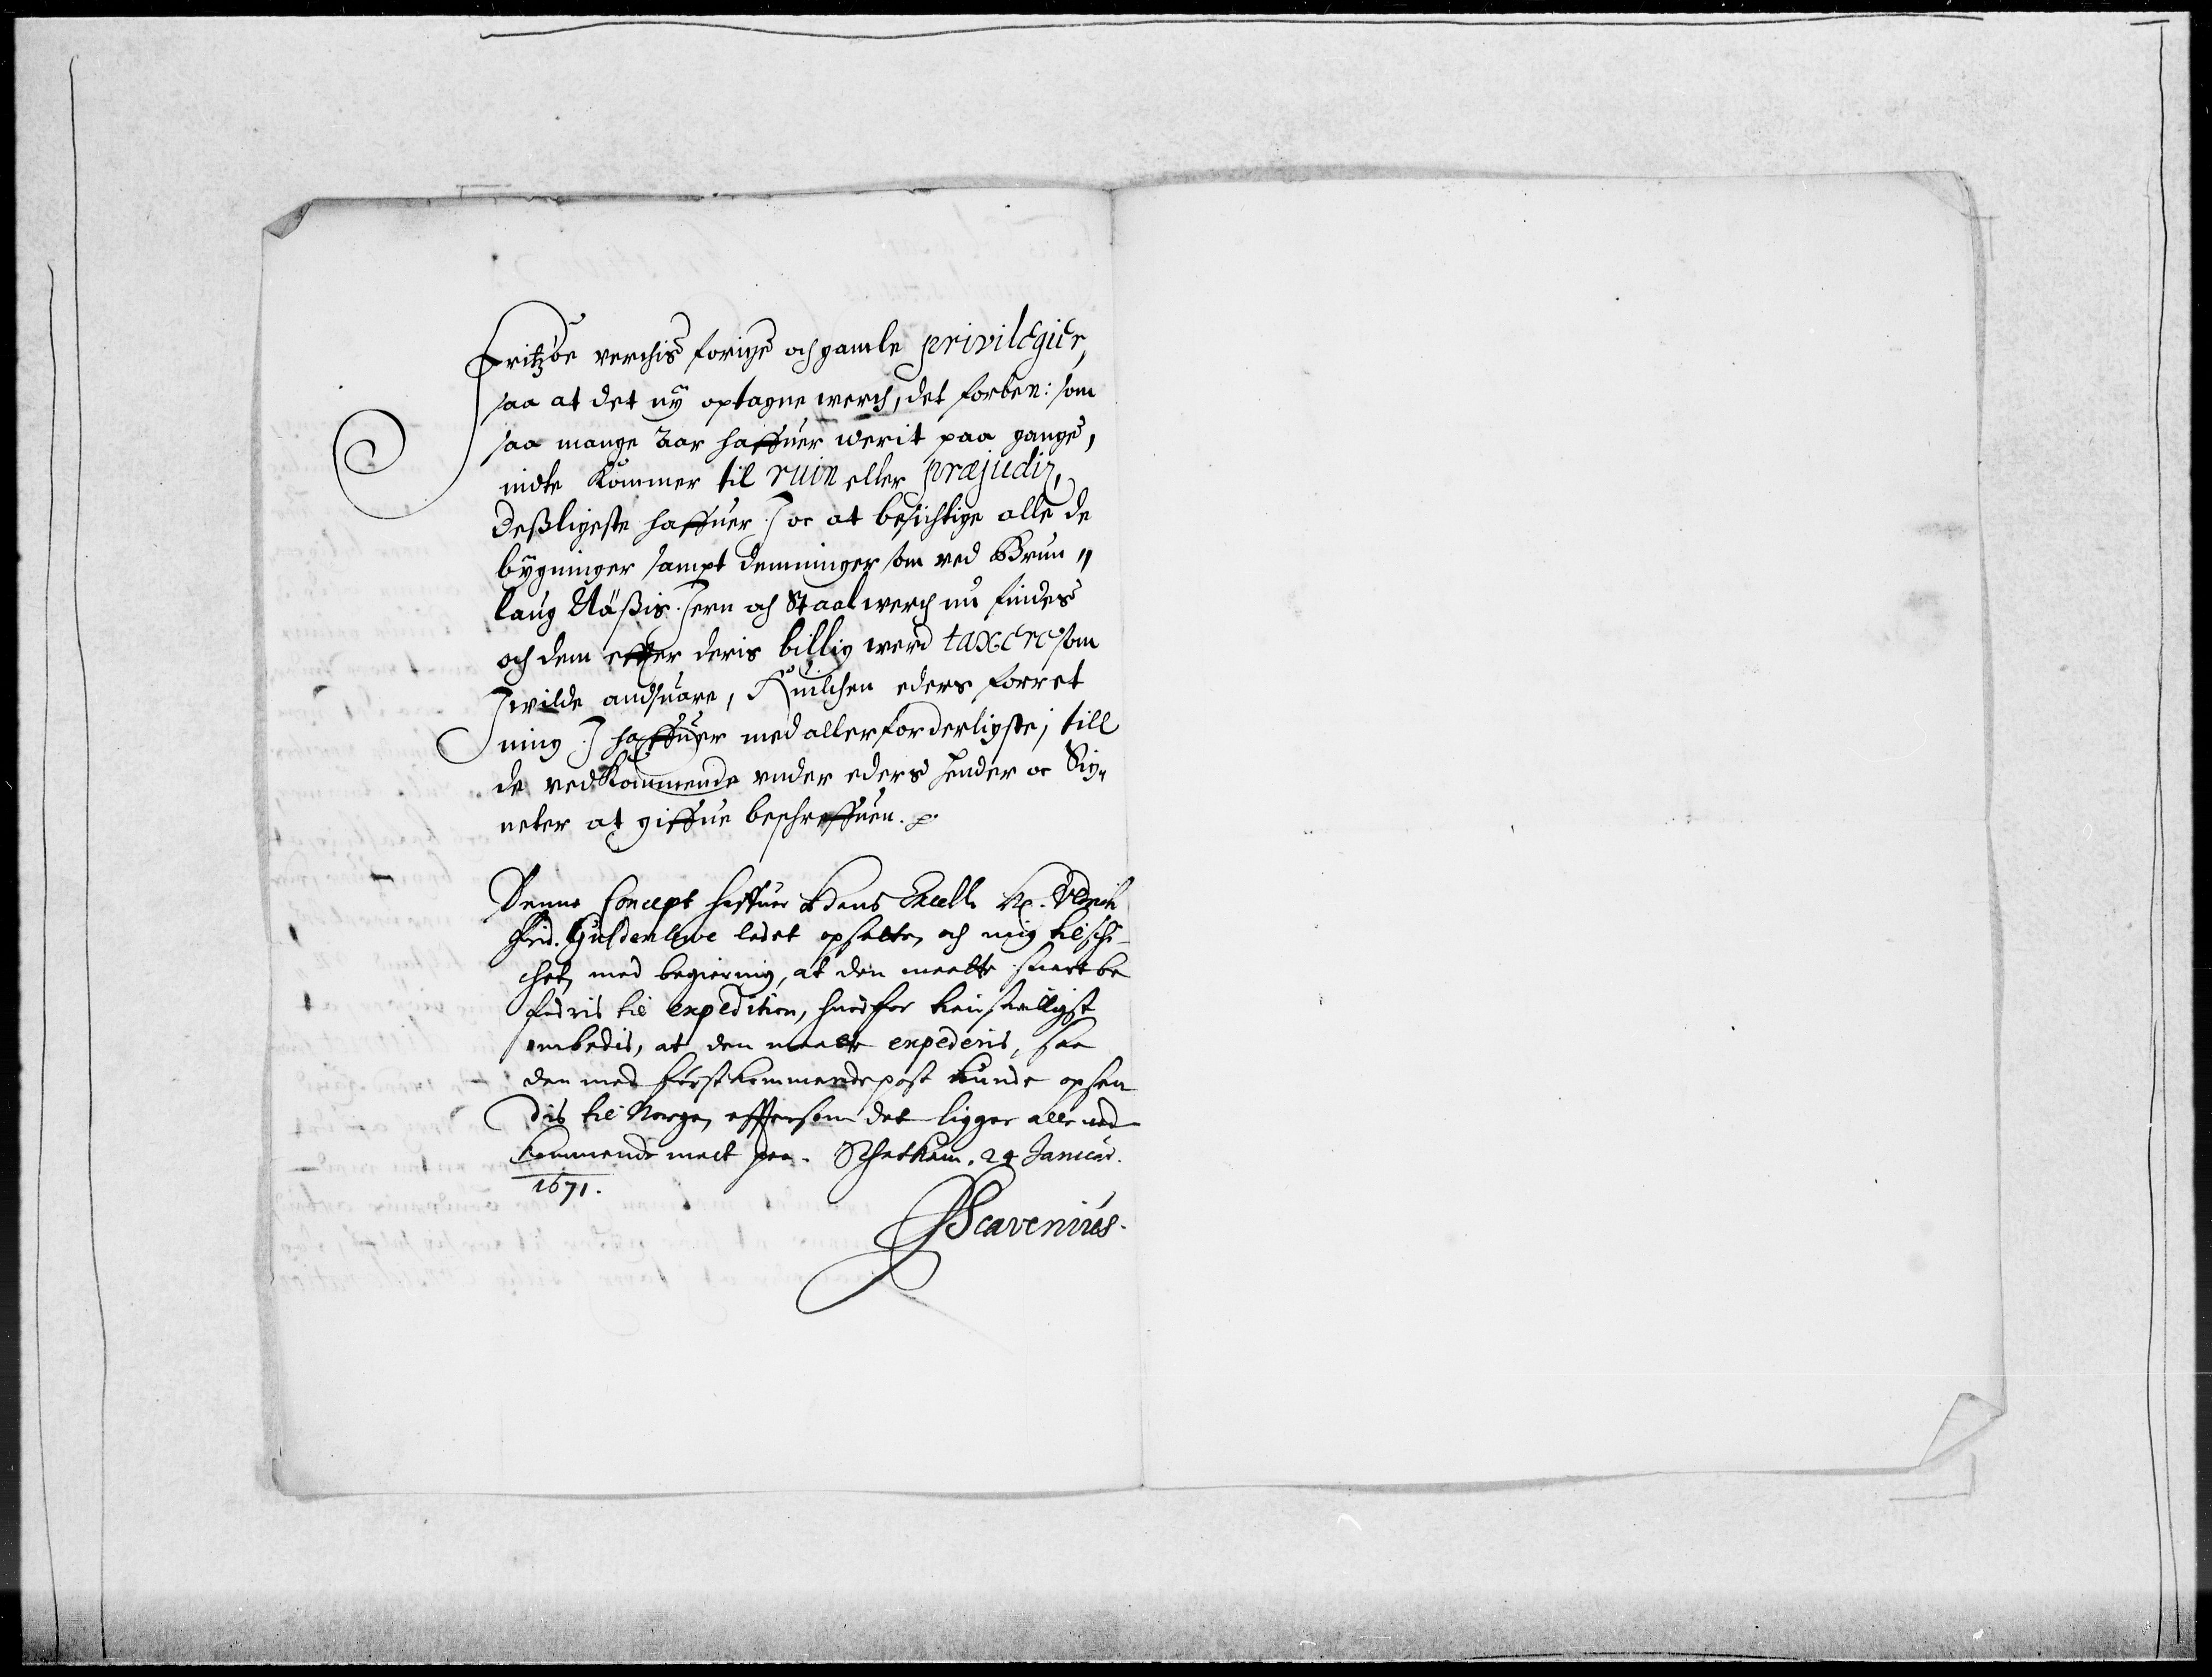 Fritzöe verchis forige och gamle privilegier,
saa at det ny optagne werch, det forben: som
saa mange Aar haffuer werit paa gange,
inote Kommer til ruin eller præjudiz,
Deßligeste haffuer I oc at besichtige alle de
bÿgninger sampt demninger som ved Brun„
laug Näßis Jern och Staalwerch nu findes
och dem effter deris billig werd taxere som
I wilde andsuare, Huilchen eders forret
ning I haffuer med allerforderligste, till
de vedKommende under eders Hender oc Sig„
neter at giffue beschreffuen. p.
Denne Concept haffuer Hans Excell. Hr. Ulrich
Frid. Guldenlewe ladet opsætte, och mig tilschi-
chet, med begiering, at den maatte snart be
fodris til expedition, huorfor tienstwilligst
ombedis, at den maatte expederis, saa
den med förstkommende post kunde opsen
dis til Norge, efftersom det ligger alle ved
kommende mact paa. Schatkam. 24 Januar.
1671.
PScavenius.